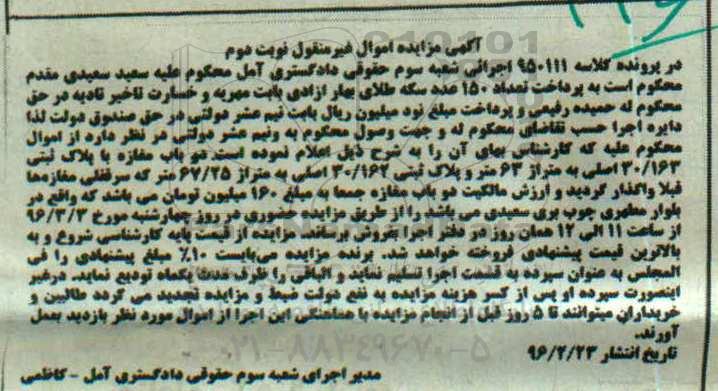 آگهی مزایده اموال غیرمنقول نوبت دوم
در پرونده کلاسه ۹۵۰۱۱۱ اجرائی شعبه سوم حقوقی دادگستری آمل محکوم علیه سعید سعیدی مقدم
محکوم است به پرداخت تعداد ۱۵۰ عدد سکه طلای بهار ازادی بابت مهریه و خسارت تاخیر تادیه در حق
محکوم له حمیده رفیعی و پرداخت مبلغ نود میلیون ریال بابت نیم عشر دولتی در حق صندوق دولت لذا
دایره اجرا حسب تقاضای محکوم له و جهت وصول محکوم به ونیم عشر دولتی در نظر دارد از اموال
محکوم علیه که کارشناس بهای آن را به شرح ذیل اعلام نموده است دو باب مغازه با پلاک ثبتی
۳۰/۱۶۳ اصلی به متراژ ۶۳ متر و پلاک ثبتی ۳۰/۱۶۲ اصلی به متراژ ۶۷/۲۵ متر که سرقفلی مغازه‌ها
قبلا واگذار گردید و ارزش مالکیت دو باب مغازه جمعا به مبلغ ۹۶۰ میلیون تومان می باشد که واقع در
بلوار مطهری چوب بری سعیدی می باشد را از طریق مزایده حضوری در روز چهارشنبه مورخ ۹۶/۳/۳
از ساعت ۱۱ الی ۱۲ همان روز در دفتر اجرا بفروش برساند. مزایده از قیمت پایه کارشناسی شروع و به
بالاترین قیمت پیشنهادی فروخته خواهد شد. برنده مزایده می‌بایست ۱۰٪ مبلغ پیشنهادی را فی
المجلس به عنوان سپرده به قسمت اجرا تسلیم نماید و الباقی را ظرف مدت یکماه تودیع نماید. درغیر
اینصورت سپرده او پس از کسر هزینه مزایده به نفع دولت ضبط و مزایده تجدید می گردد طالبین و
خریداران میتوانند تا ۵ روز قبل از انجام مزایده با هماهنگی این اجرا از اموال مورد نظر بازدید بعمل
آورند.
تاریخ انتشار ۹۶/۲/۲۳
مدیر اجرای شعبه سوم حقوقی دادگستری آمل - کاظمی
۰۲۱-۸۸۳۴۹۶۷۰-۵